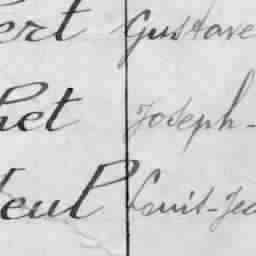 ert Gustave
het Joseph-
teul Louis-Jea